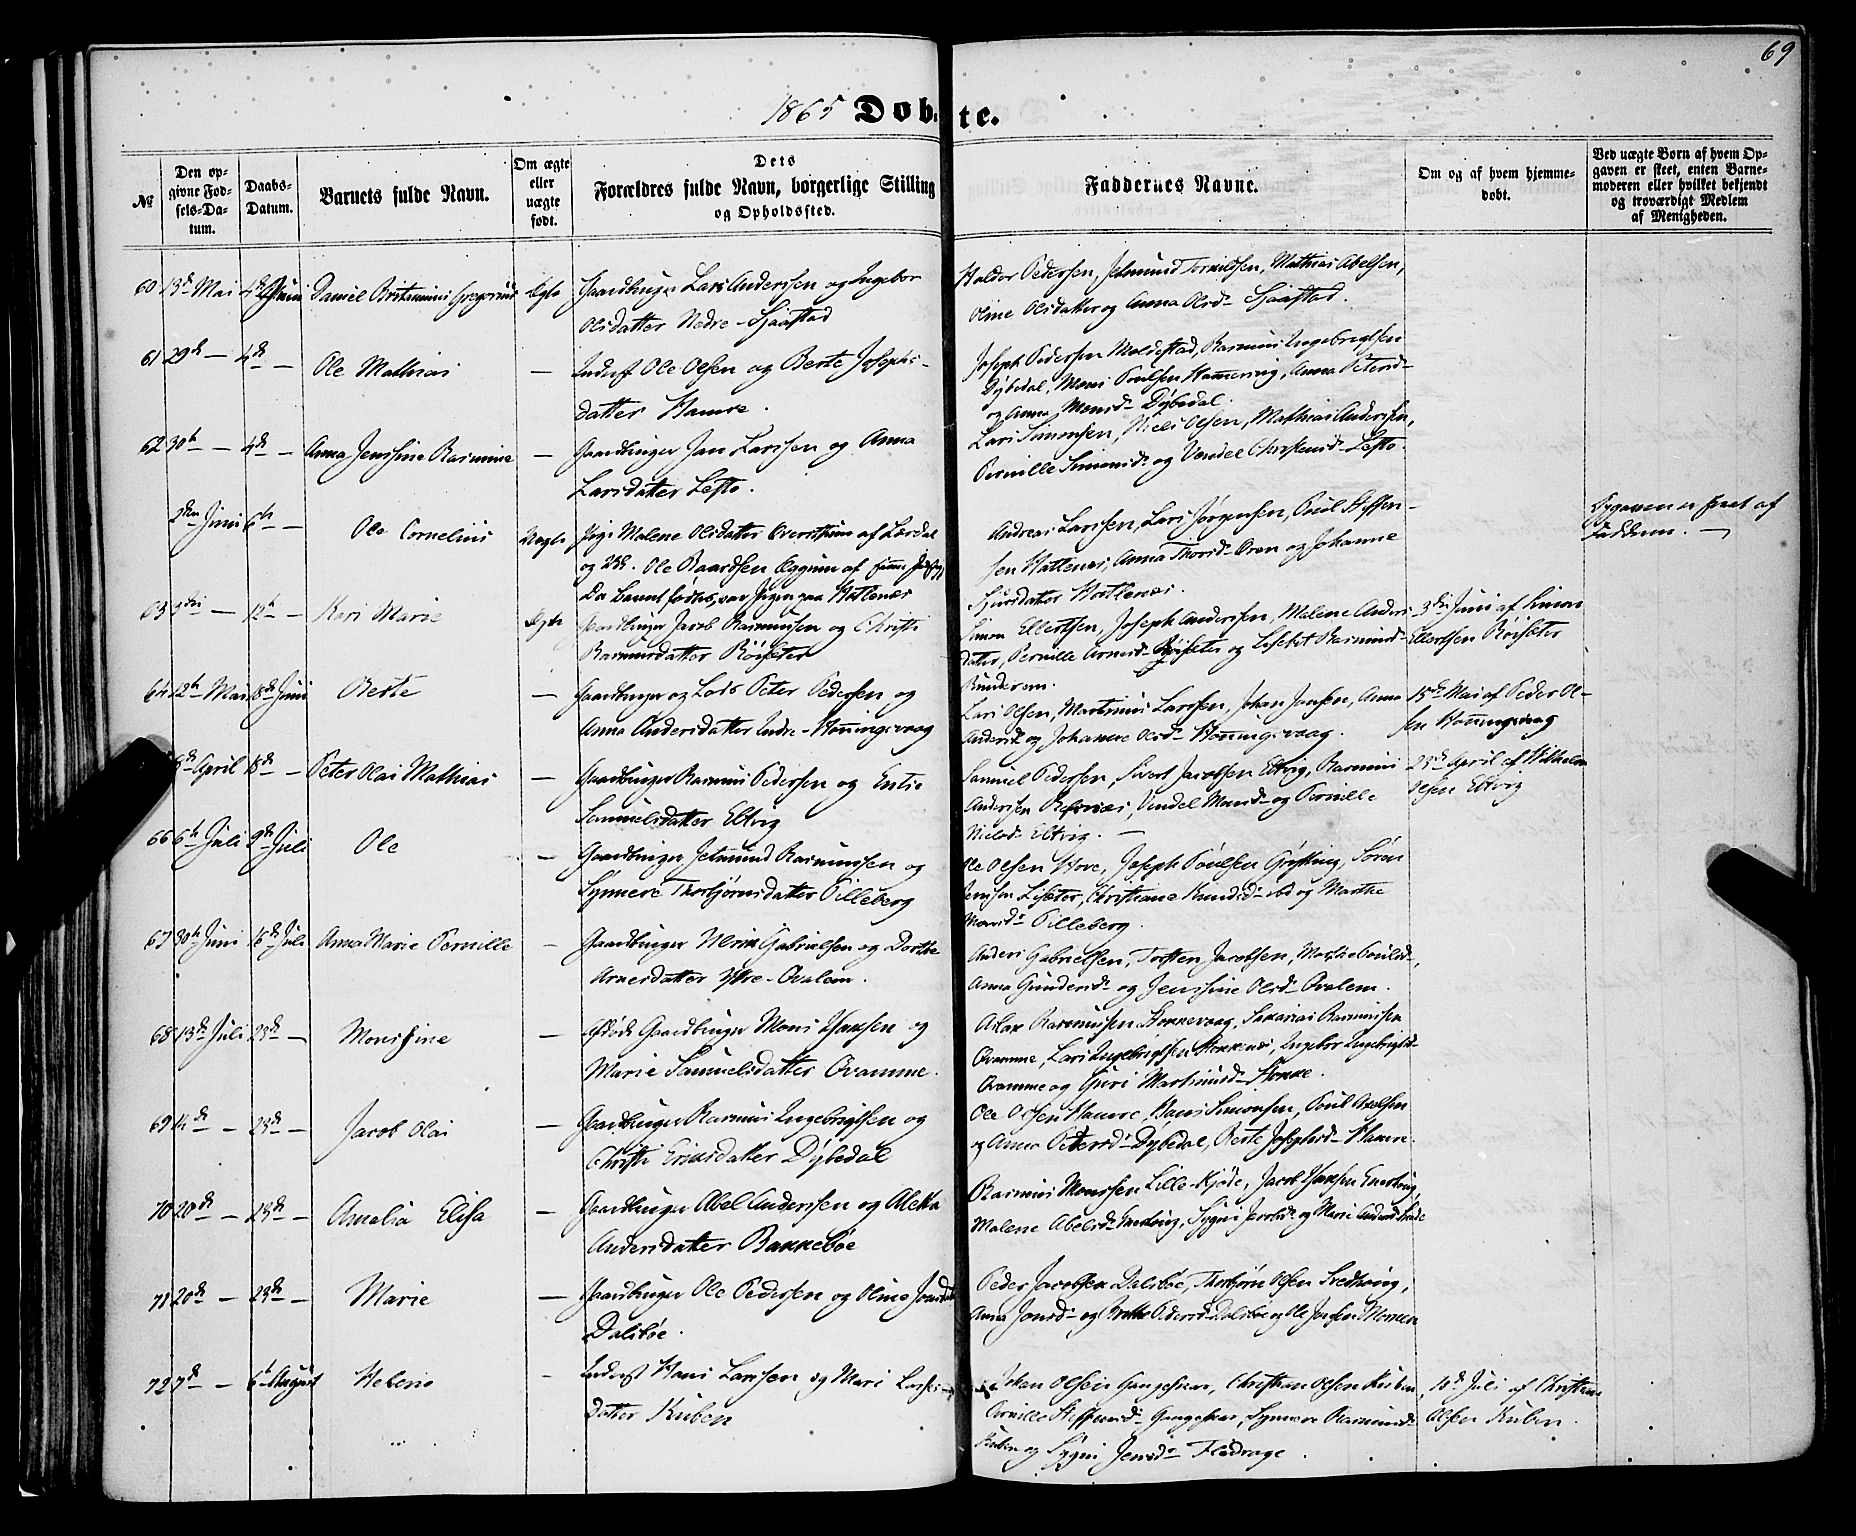 69
1865 Døbte.
No
Den opgivne Fødsels-Datum.
Daabs-Datum.
Barnets fulde Navn.
Om ægte eller uægte født.
Dets Forældres fulde Navn, borgerlige Stilling og Opholdssted.
Faddernes Navne.
Om og af hvem hjemmedøbt.
Ved uægte Børn af hvem Opgaven er skeet, enten Barnemoderen eller hvilket bekjendt og troværdigt Medlem af Menigheden.
60 13de Mai 4de Juni Daniel Gregorius Ægte Gaardbruger Lars Anderssen og Ingebor
Olsdatter Nedre-Sjaastad
Haldor Pederssen, Jetmund Mathias Abelsen,
Oline Olsdatter og Anna Olsd. Sjaastad.
61 29de — 4de — Ole Mathias — Inderst Ole Olsen og Berte Josephs-
datter Hamre.
Joseph Pederssen Moldestad, Rasmus Ingebrigtsen
Dybedal, Mons Poulsen Anna Petersd.
og Anna Monsd. Dybedal.
62 30te — 4de — Anna Jenssine Rasmine — Gaardbruger Jan Larssen og Anna
Larsdatter Lefto.
Lars Simonsen, Niels Olsen, Mathias Andersen,
Pernille Simonsd. og Vendel Lefto.
2den Juni 5te — Ole Cornelius Uægte Pige Malene Olsdatter af Lærdal
og Ole Baardsen af
Da Barnet fødtes, var Pigen paa Hatlenæs
Andreas Larssen, Lars Jørgensen, Poul Steffen-
sen Hatlenæs, Anna Thorsd. Oren og Johanne
Sjursdatter Hatlenæs.
Opgaven er skeet af
Fadderen. —
63 3die — 12te — Keri Marie Ægte Gaardbruger Jacob Rasmussen og Christi
Rasmusdatter Röisæter
Simon Ellertsen, Joseph Anderssen, Malene Anders-
datter, Pernille Arnesd. Röisæter og Lisebet Rasmusd.
Runderem.
3die Juni af Simon
Ellertsen Röisæter
64 12te Mai 18de Juni Berte — Gaardbruger og Lods Peter Pederssen og
Anna Andersdatter Indre-Honningsvaag
Lars Olsen, Martinus Larssen, Johan Jansen, Anna
Andersd. og Johanne Olsd. Honningsvaag.
15de Mai af Peder Ol-
sen Honningsvaag
April 18de — Peter Olai Mathias — Gaardbruger Rasmus Pederssen og
Samuelsdatter Eltvig
Samuel Pederssen, Sivert Jacobsen Eltvig, Rasmus
Andersen Refvnæs, Vendel Monsd. og Pernille
Nielsd. Eltvig. —
23de April af Vilhelm
Olsen Eltvig
66 6te Juli 9de Juli Ole — Gaardbruger Jetmund Rasmussen og
Synneve Thorbjørnsdatter Pilleberg
Ole Olsen Hove, Joseph Poulsen Søren
Jenssen Lisæter, Christiane Knudsd. ibd. og Marthe
Monsd. Pilleberg.
67 30te Juni 16de Juli Anna Marie Pernille — Gaardbruger Ulrik Gabrielsen og Dorthe
Arnesdatter Ytre-Ovalem.
Anders Gabrielsen, Torsten Jacobsen, Marthe Poulsd.,
Anna Gundersd. og Jenssine Olsd. Ovalem.
68 13de Juli 23de — Monssine — Afdøde Gaardbruger Mons Hanssen og
Marie Samuelsdatter Qvamme.
Aslak Rasmussen Stokkevaag, Sakarias Rasmussen
Qvamme, Lars Ingebrigtsen Stokkenæs, Ingebor Ingebrigtsd.
Qvamme og Guri Martinusd. Stokke.
69 14de — 23de — Jacob Olai — Gaardbruger Rasmus Ingebrigtsen og
Christi Eriksdatter Dybedal
Ole Olsen Hamre, Hans Simonsen, Poul
og Anna Petersd. Dybedal, Berte Josephsd. Hamre.
70 20de — 23de — Amalia Elisa — Gaardbruger Abel Anderssen og Aletta
Andersdatter Bakkebøe
Rasmus Monssen Lille-Kjøde, Jacob Hanssen
Malene Abelsd. Sygni Jacobsd. og Marie Andersd.
71 20de — 23de — Marie — Gaardbruger Ole Pederssen og Oline Jonsdatter
Dalsbøe.
Peder Jacobsen Dalsbøe, Thorbjørn Olsen
Anna Jonsd. og Berthe Pedersd. Dalsbøe og Ole Jonssen
72 7de — 6te August Helene — Inderst Hans Larssen og Mari Lars-
datter Kuben
Johan Olsen Christian Olsen Kuben
Pernille Steffensd. Synneve Rasmusd.
Kuben og Sygni Jensd. Flødrage.
10de Juli af Christian
Olsen Kuben.